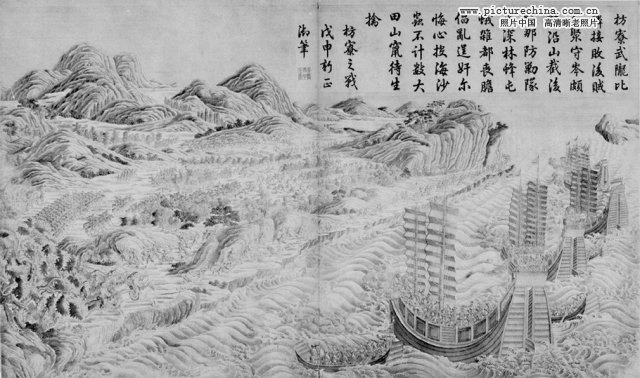 www.picturechina.com.cn
照片中国 高清晰老照片
枋寮武隴比
接敗後賊
聚守岑頗
沿山截後
那防勦隊
深林 屯
蟻雖都喪膽
倡亂逞奸尔
悔心投海沙
蟲不计數大
田山竄待生
擒
枋寮之戰
戊申新正
御筆